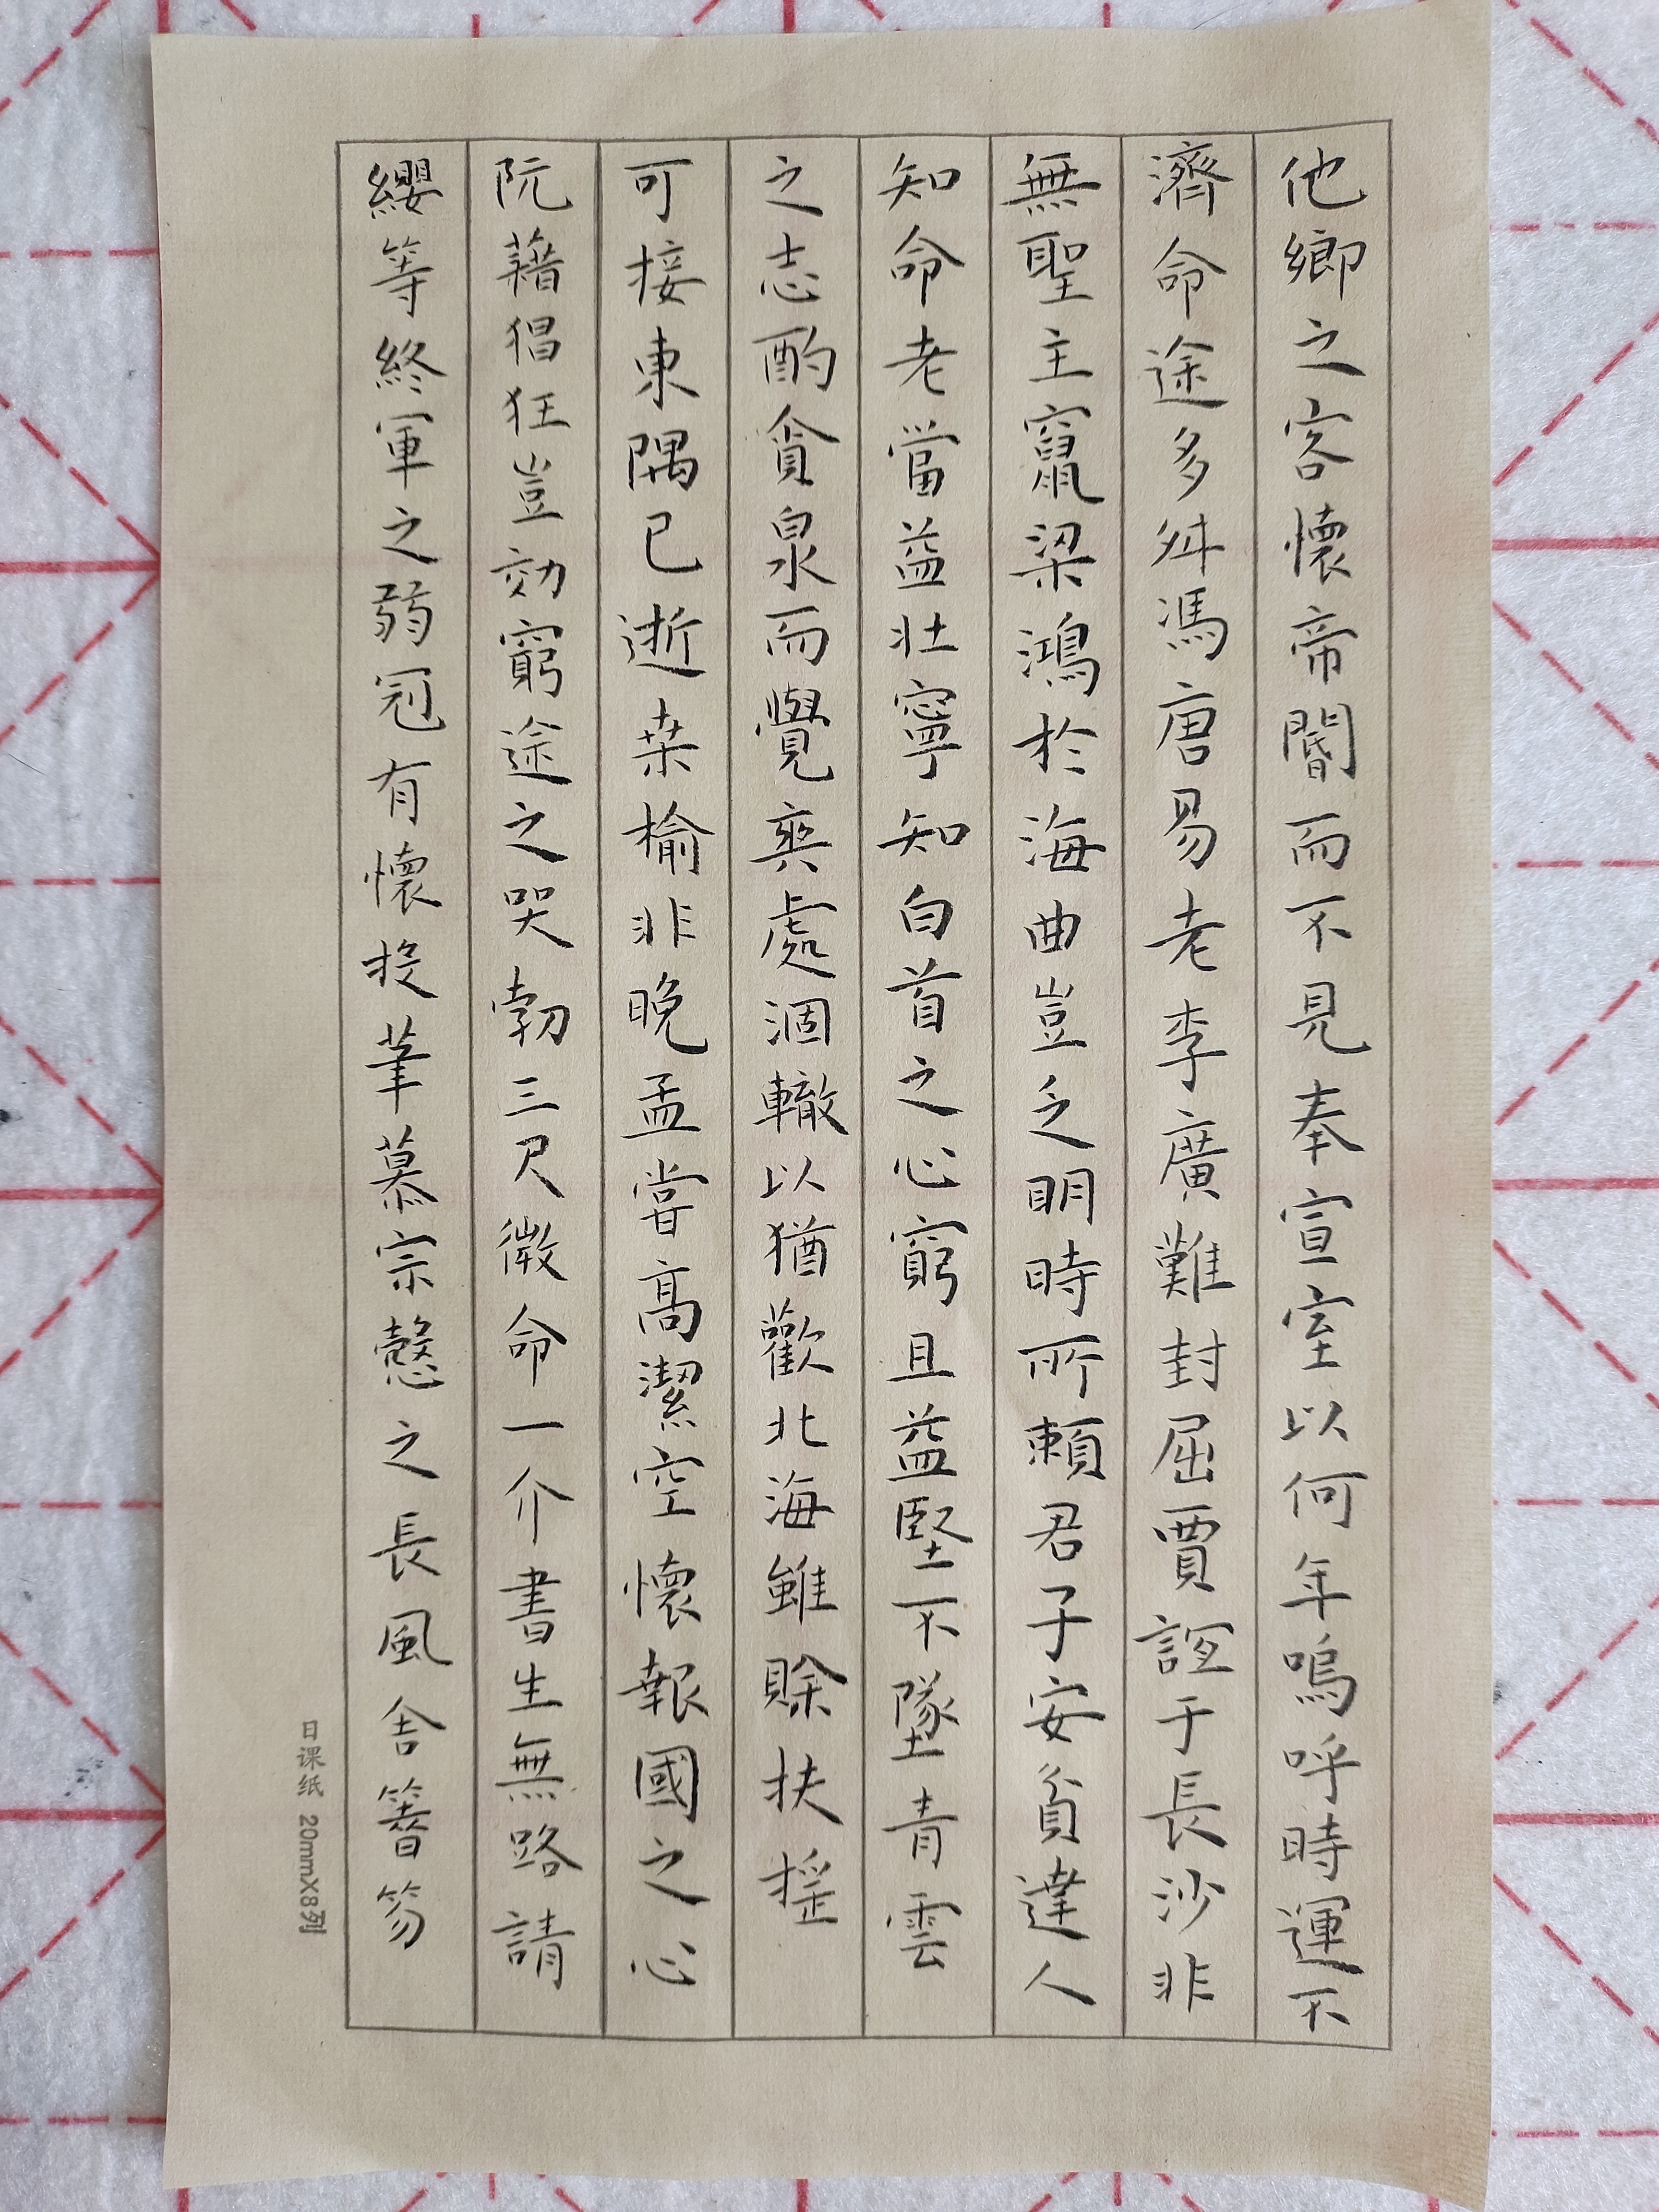 他鄉之客懷帝閽而不見奉宣室以何年嗚呼時運不
濟命途多舛馮唐易老李廣難封屈賈誼于長沙非
無聖主竄梁鴻於海曲豈乏明時所賴君子安貧達人
知命老當益壯寧知白首之心窮且益堅不墜青雲
之志酌貪泉而覺爽處涸轍以猶歡北海雖賒扶搖
可接東隅已逝桒榆非晚孟嘗高潔空懷報國之心
阮藉猖狂豈効窮途之哭勃三尺微命一介書生無路請
纓等終軍之弱冠有懷投筆慕宗慤之長風舍簪笏
日课纸 20mmX8列